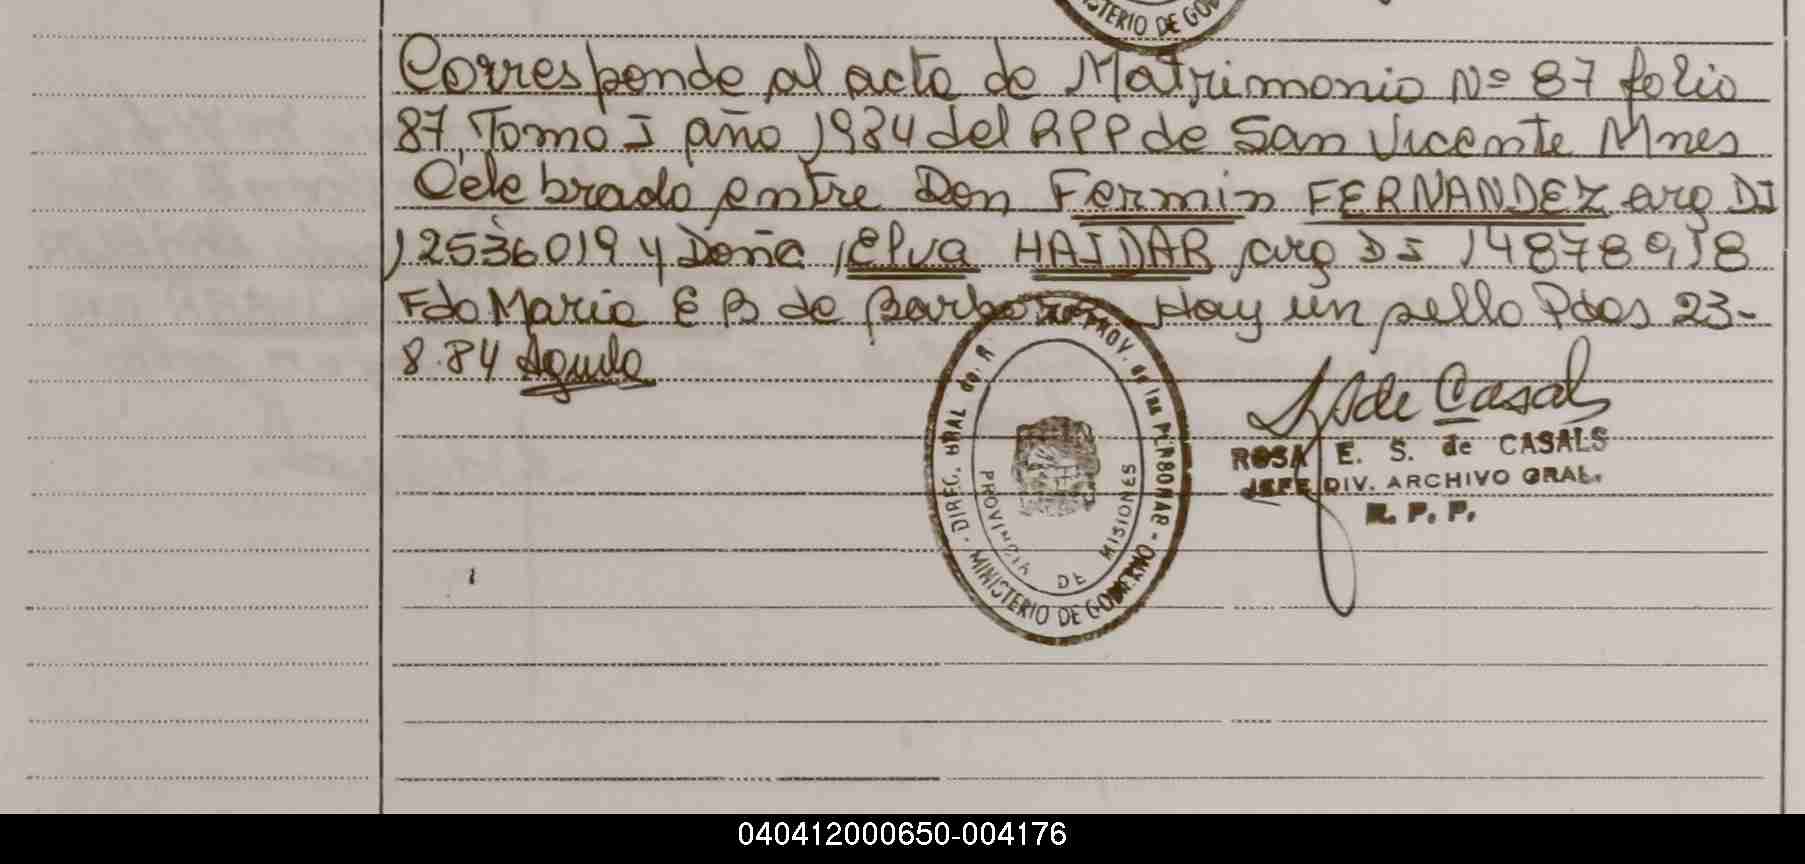 MINISTERIO DE GOB
Corresponde al acta de Matrimonio Nº 87 folio
87, Tomo I año 1984 del RPP de San Vicente Mnes
Celebrado entre Don Fermin FERNANDEZ arg DI
12536019 y Doña Elva HAIDAR arg DI 14878918
Fdo Maria E B de Barboza Hay un sello Pdas 23-
8.84 Aguda
de Casals
ROSA E. S. de CASALS
JEFE DIV. ARCHIVO GRAL.
R. P. P.
DIREC. GRAL de R PROV. de las PERSONAS - MINISTERIO DE GOBIERNO -
PROVINCIA DE MISIONES
040412000650-004176